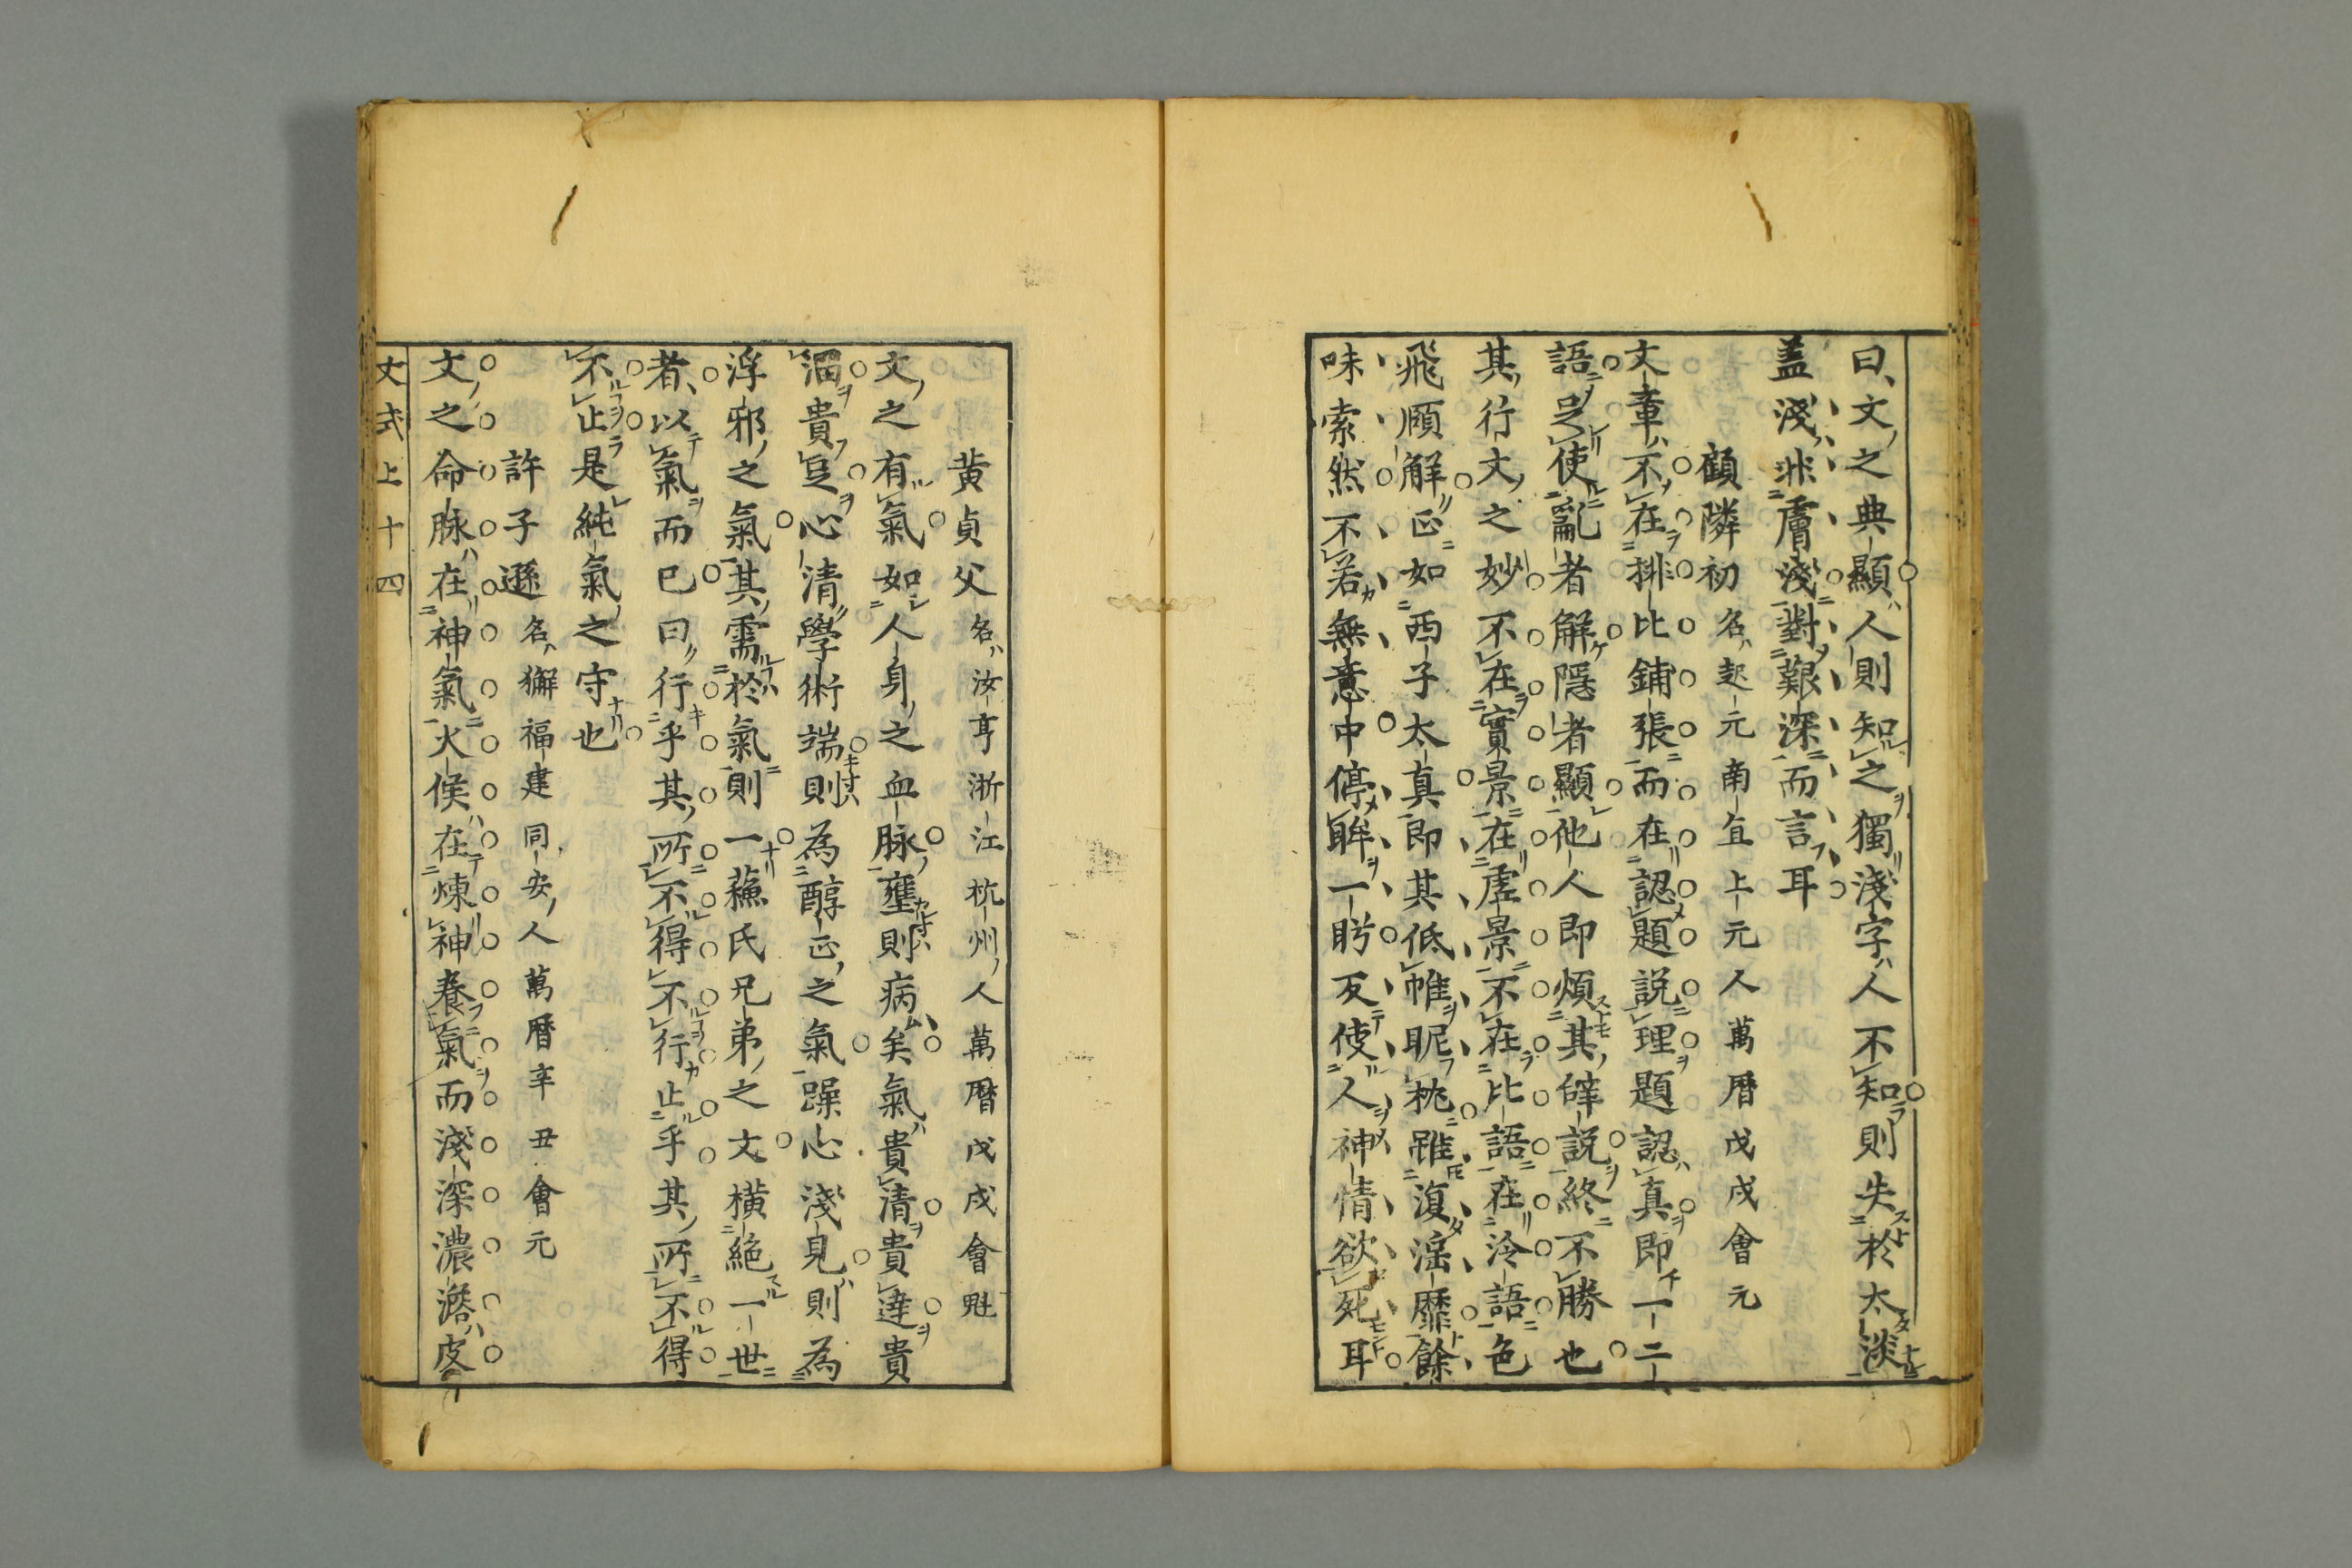 曰文之典顯人則知之獨淺字人不知則失於太淡
盖淺非膚淺對艱深而言耳
顧隣初名起元南直上元人萬曆戊戌會元
文章不在排比鋪張而在認題説理題認真即一二
語足使亂者解隱者顯他人即煩其辭説終不勝也
其行文之妙不在實景在虛景不在比語在冷語色
飛頤解正如西子太真即其低帷昵枕雖復淫靡餘
味索然不若無意中停眸一盻反使人神情欲死耳
黃貞父名汝亨浙江杭州人萬曆戊戌會魁
文之有氣如人身之血脉壅則病矣氣貴清貴達貴
涵貴足心清學術端則為醇正之氣躁心淺見則為
浮邪之氣其需於氣則一蘇氏兄弟之文橫絶一世
者以氣而已曰行乎其所不得不行止乎其所不得
不止是純氣之守也
許子遜名獬福建同安人萬曆辛丑會元
文之命脉在神氣火候在煉神養氣而淺深濃澹皮
文式上十四